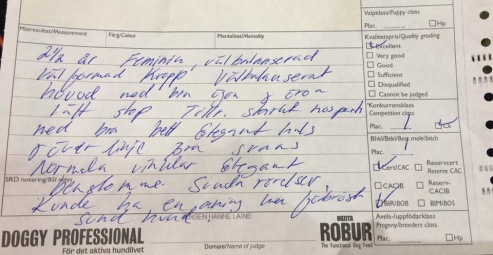 Mätresultat/Measurement Färg/Colour Mentalitet/Mentality
2½ år Feminin, välbalanserad
Välformad kropp, Välbalanserat
huvud med bra ögon & öron
stop Tillr. starkt
med bra bett Elegant hals
& över linje Bra svans
Normala vinklar Elegant
SRD notering/BSI
Sunda rörelser,
Kunde ha en aning mer förbröst
Sund hund
SEN HANNE LAINE
DOGGY PROFESSIONAL
För det aktiva hundlivet
Domare/Name of judge
BOZITA
ROBUR
The Functional Dog Food
Valpklass/Puppy class
Plac. HP
Kvalitetspris/Quality grading
Excellent
Very good
Good
Sufficient
Disqualified
Cannot be judged
*Konkurrensklass
Competition class
Plac. 1 CK
Bhkl/Btkl/Best male/bitch
Plac. 1
Cert/CAC Reservcert
Reserve CAC
CACIB Reserv-
CACIB
BIR/BOB BIM/BOS
Avels-/uppfödarklass
Progeny/breeders class